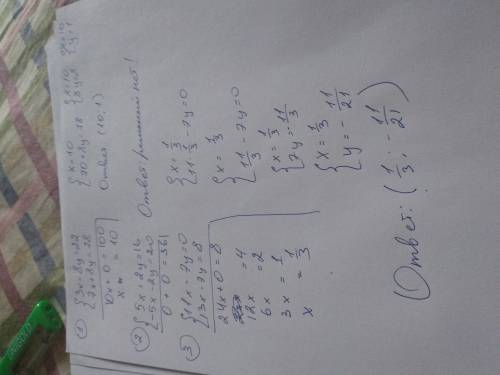 ① {3x - 8y = 22
{7x + 8y = 78
10x + 0 = 100
x = 10
{x = 10
{70 + 8y = 78
{x = 10
{8y = 8
{x = 10
{y = 1
Ответ (10; 1)
② {5x + 2y = 16
{-5x - 2y = 20
0 + 0 = 36
Ответ: решений нет!
③ {11x - 7y = 0
{13x - 7y = 8
24x + 0 = 8
12x = 4
6x = 2
3x = 1
x = 1/3
{x = 1/3
{11 · 1/3 - 7y = 0
{x = 1/3
{11/3 - 7y = 0
{x = 1/3
{7y = -11/3
{x = 1/3
{y = -11/21
Ответ: (1/3; -11/21)